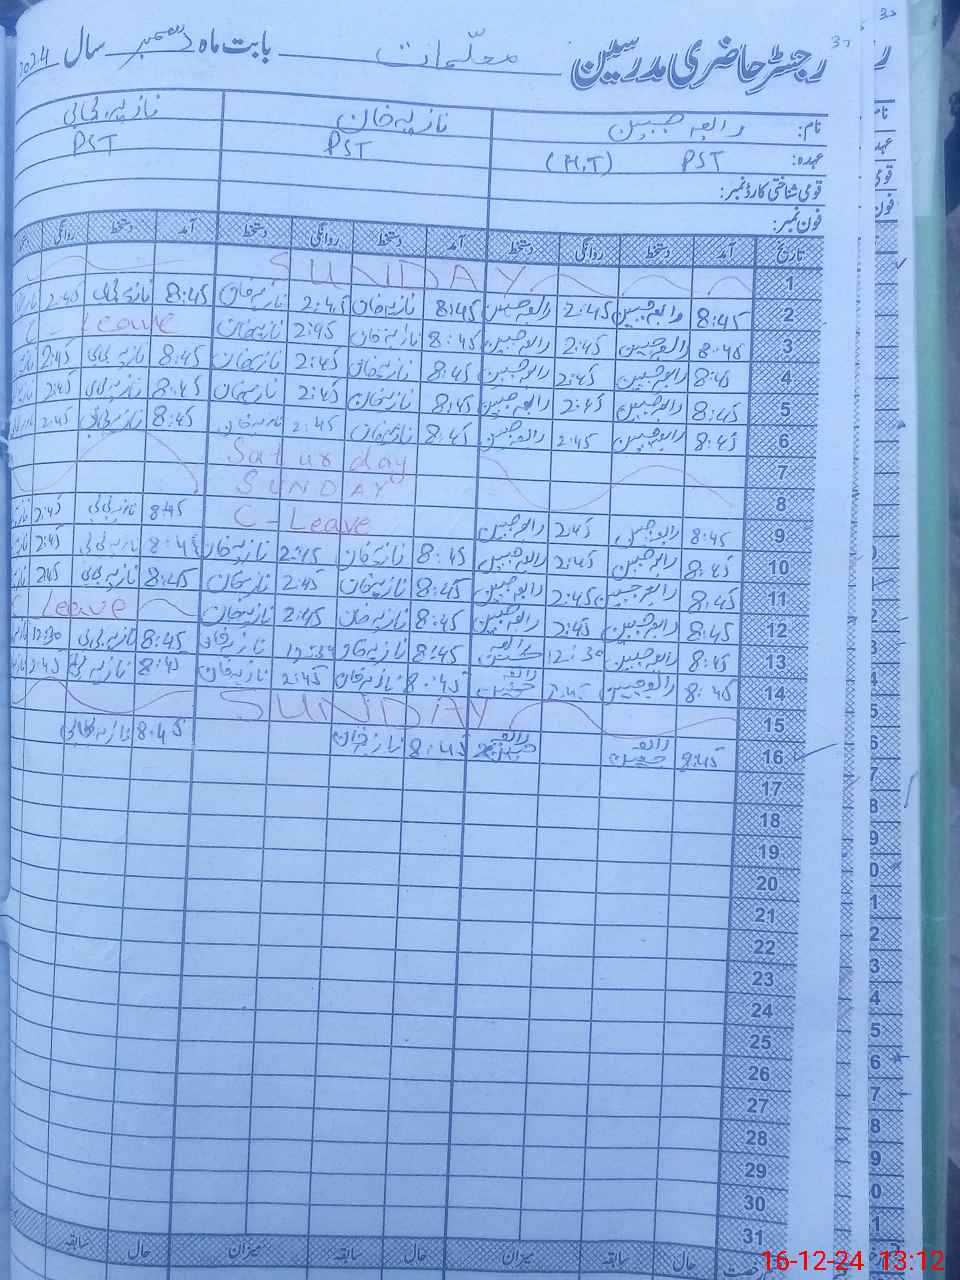 رجسٹر حاضری مدرسین معلمات بابت ماہ دسمبر سال 2024
نام: رابعہ جبین نازیہ خان نازیہ بی بی
عہدہ: PST (H.T) PST PST
قومی شناختی کارڈ نمبر:
فون نمبر:
تاریخ آمد دستخط روانگی دستخط آمد دستخط روانگی دستخط آمد دستخط روانگی
1 SUNDAY
2 8:45 رابعہ جبین 2:45 رابعہ جبین 8:45 نازیہ خان 2:45 نازیہ خان 8:45 نازیہ بی بی 2:45
3 8:45 رابعہ جبین 2:45 رابعہ جبین 8:45 نازیہ خان 2:45 نازیہ خان C - Leave
4 8:45 رابعہ جبین 2:45 رابعہ جبین 8:45 نازیہ خان 2:45 نازیہ خان 8:45 نازیہ بی بی 2:45
5 8:45 رابعہ جبین 2:45 رابعہ جبین 8:45 نازیہ خان 2:45 نازیہ خان 8:45 نازیہ بی بی 2:45
6 8:45 رابعہ جبین 2:45 رابعہ جبین 8:45 نازیہ خان 2:45 نازیہ خان 8:45 نازیہ بی بی 2:45
7 Saturday
8 SUNDAY
9 8:45 رابعہ جبین 2:45 رابعہ جبین C - Leave 8:45 نازیہ بی بی 2:45
10 8:45 رابعہ جبین 2:45 رابعہ جبین 8:45 نازیہ خان 2:45 نازیہ خان 8:45 نازیہ بی بی 2:45
11 8:45 رابعہ جبین 2:45 رابعہ جبین 8:45 نازیہ خان 2:45 نازیہ خان 8:45 نازیہ بی بی 2:45
12 8:45 رابعہ جبین 2:45 رابعہ جبین 8:45 نازیہ خان 2:45 نازیہ خان Leave
13 8:45 رابعہ جبین 12:30 رابعہ جبین 8:45 نازیہ خان 12:30 نازیہ خان 8:45 نازیہ بی بی 12:30
14 8:45 رابعہ جبین 2:45 رابعہ جبین 8:45 نازیہ خان 2:45 نازیہ خان 8:45 نازیہ بی بی 2:45
15 SUNDAY
16 8:45 رابعہ جبین رابعہ جبین 8:45 نازیہ خان 8:45 نازیہ بی بی
17
18
19
20
21
22
23
24
25
26
27
28
29
30
31
حال سابقہ میزان حال سابقہ میزان حال سابقہ
16-12-24 13:12